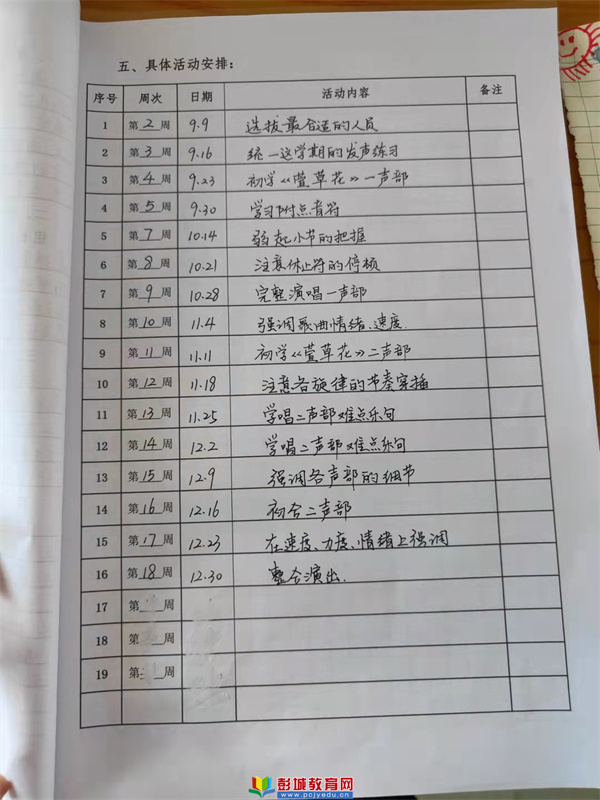 五、具体活动安排：
序号 周次 日期 活动内容 备注
1 第2周 9.9 选拔最合适的人员
2 第3周 9.16 统一这学期的发声练习
3 第4周 9.23 初学《萱草花》一声部
4 第5周 9.30 学习附点音符
5 第7周 10.14 弱起小节的把握
6 第8周 10.21 注意休止符的停顿
7 第9周 10.28 完整演唱一声部
8 第10周 11.4 强调歌曲情绪、速度.
9 第11周 11.11 初学《萱草花》二声部
10 第12周 11.18 注意各旋律的节奏穿插
11 第13周 11.25 学唱二声部难点乐句
12 第14周 12.2 学唱二声部难点乐句
13 第15周 12.9 强调各声部的细节
14 第16周 12.16 初合二声部
15 第17周 12.23 在速度、力度、情绪上强调
16 第18周 12.30 整合演出.
17 第 周
18 第 周
19 第 周
彭城教育网
www.pcjyedu.cn